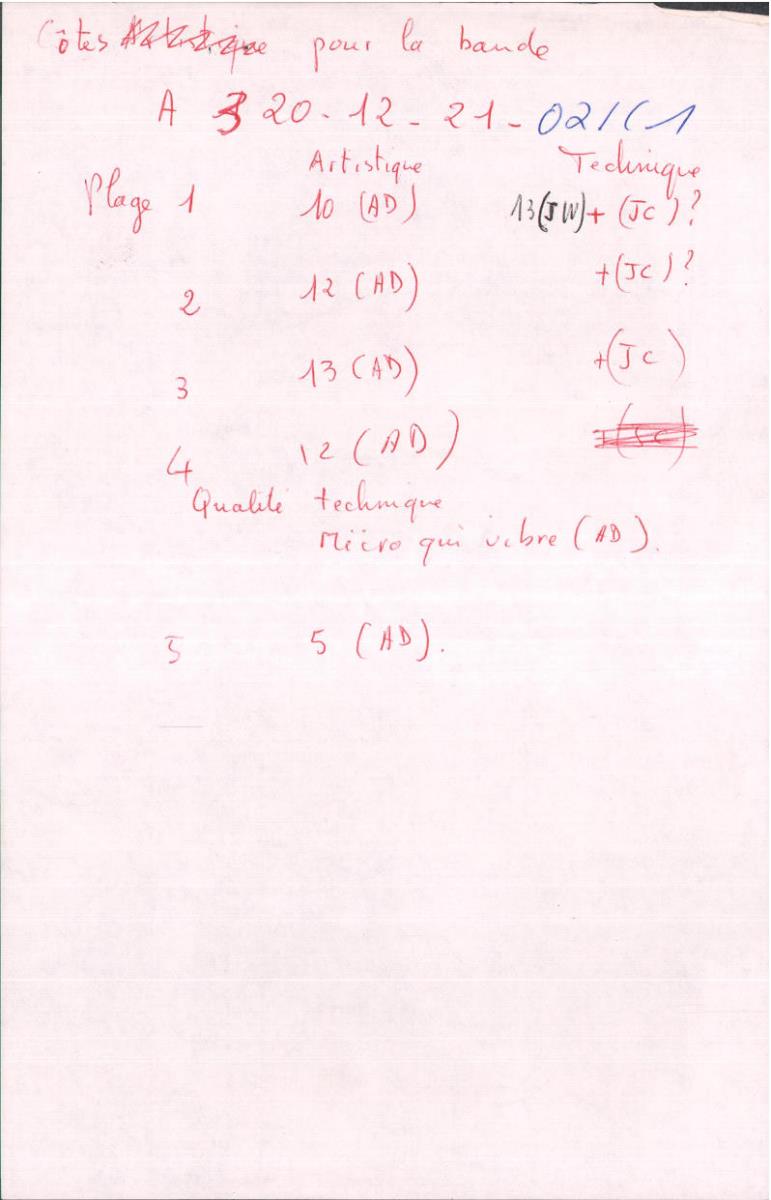 Côtes Artistique pour la bande
A 3 20-12-21-021C1
Artistique Technique
Plage 1 10 (AD) 13(JW)+(JC)?
2 12 (AD) +(JC)?
3 13 (AD) +(JC)
4 12 (AD) +(JC)
Qualité technique
Micro qui vibre (AD).
5 5 (AD).